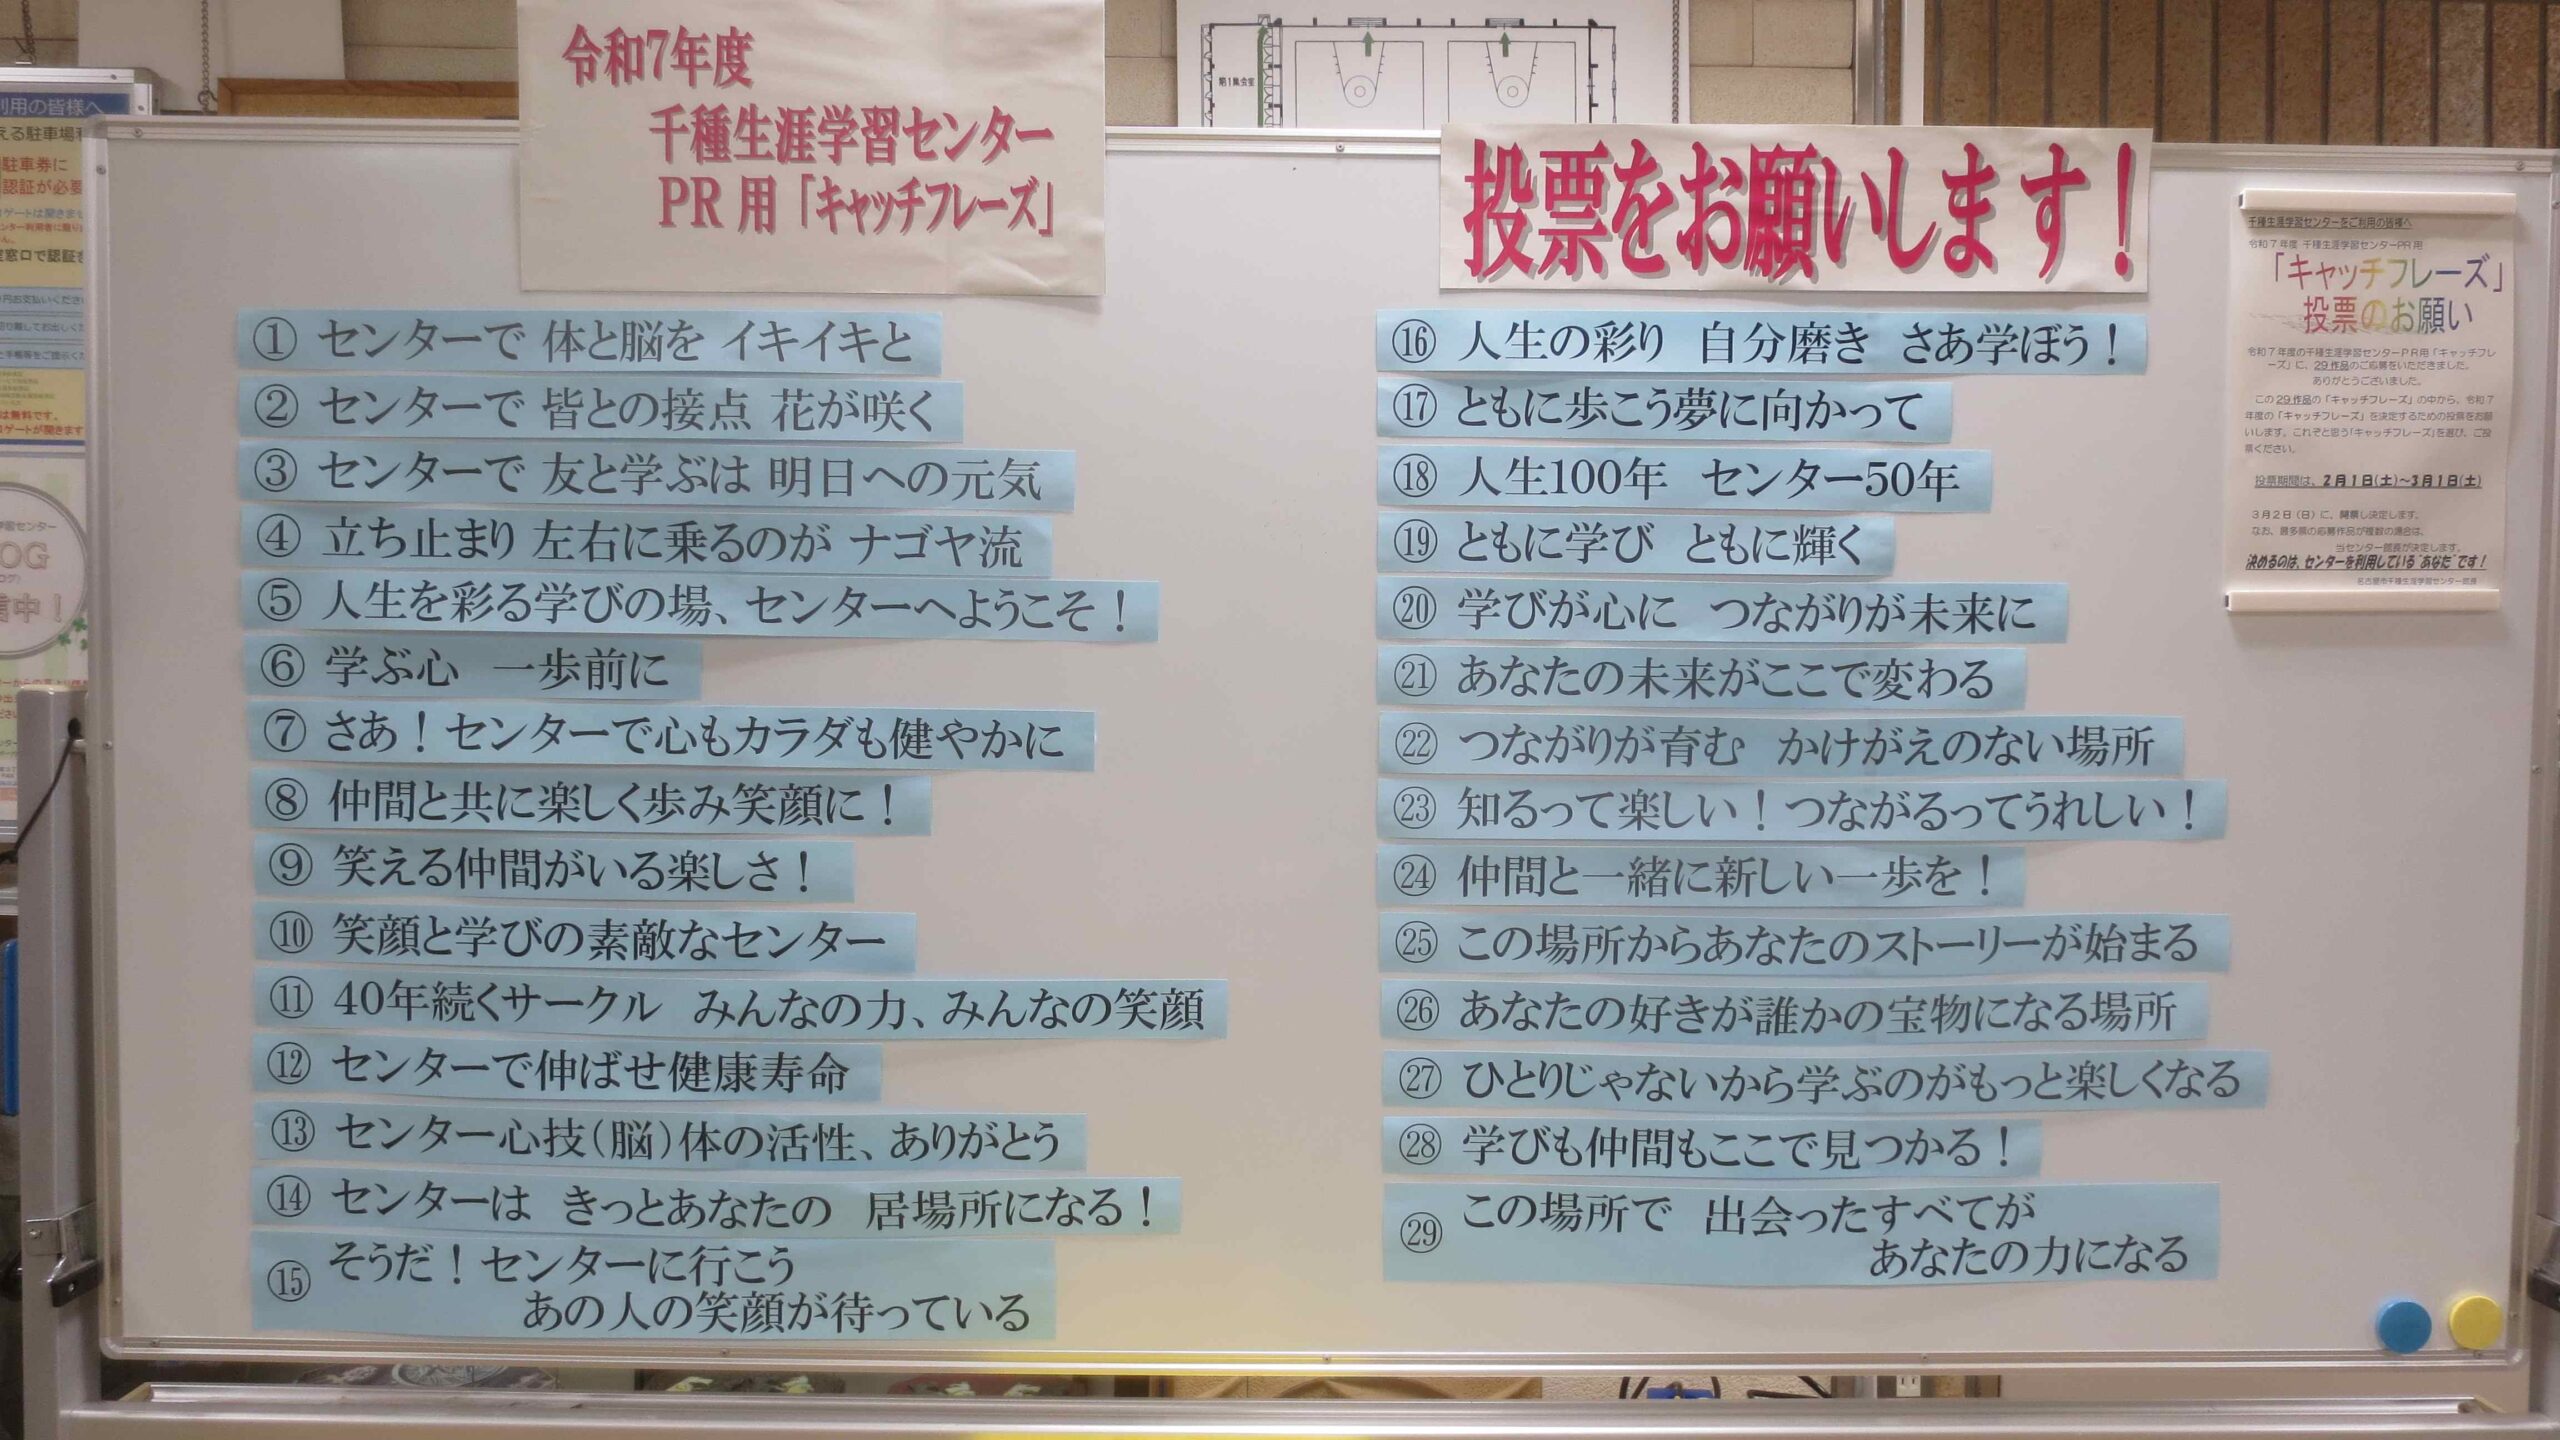 令和7年度
千種生涯学習センター
PR用「キャッチフレーズ」
投票をお願いします！
① センターで 体と脳を イキイキと
② センターで 皆との接点 花が咲く
③ センターで 友と学ぶは 明日への元気
④ 立ち止まり 左右に乗るのが ナゴヤ流
⑤ 人生を彩る学びの場、センターへようこそ！
⑥ 学ぶ心　一歩前に
⑦ さあ！センターで心もカラダも健やかに
⑧ 仲間と共に楽しく歩み笑顔に！
⑨ 笑える仲間がいる楽しさ！
⑩ 笑顔と学びの素敵なセンター
⑪ 40年続くサークル　みんなの力、みんなの笑顔
⑫ センターで伸ばせ健康寿命
⑬ センター心技（脳）体の活性、ありがとう
⑭ センターは　きっとあなたの　居場所になる！
⑮ そうだ！センターに行こう
あの人の笑顔が待っている
⑯ 人生の彩り　自分磨き　さあ学ぼう！
⑰ ともに歩こう夢に向かって
⑱ 人生100年　センター50年
⑲ ともに学び　ともに輝く
⑳ 学びが心に　つながりが未来に
㉑ あなたの未来がここで変わる
㉒ つながりが育む　かけがえのない場所
㉓ 知るって楽しい！つながるってうれしい！
㉔ 仲間と一緒に新しい一歩を！
㉕ この場所からあなたのストーリーが始まる
㉖ あなたの好きが誰かの宝物になる場所
㉗ ひとりじゃないから学ぶのがもっと楽しくなる
㉘ 学びも仲間もここで見つかる！
㉙ この場所で　出会ったすべてが
あなたの力になる
千種生涯学習センターをご利用の皆様へ
令和7年度 千種生涯学習センターPR用
「キャッチフレーズ」
投票のお願い
令和7年度の千種生涯学習センターPR用「キャッチフレ
ーズ」に、29作品のご応募をいただきました。
ありがとうございました。
この29作品の「キャッチフレーズ」の中から、令和7
年度の「キャッチフレーズ」を決定するための投票をお願
いします。これぞと思う「キャッチフレーズ」を選び、ご投
票ください。
投票期間は、2月1日(土)～3月1日(土)
3月2日（日）に、開票し決定します。
なお、最多票の応募作品が複数の場合は、
当センター館長が決定します。
決めるのは、センターを利用している“あなた”です！
名古屋市千種生涯学習センター館長
第1集会室
利用の皆様へ
える駐車場利
駐車券に
認証が必要
窓口で認証を
は無料です。